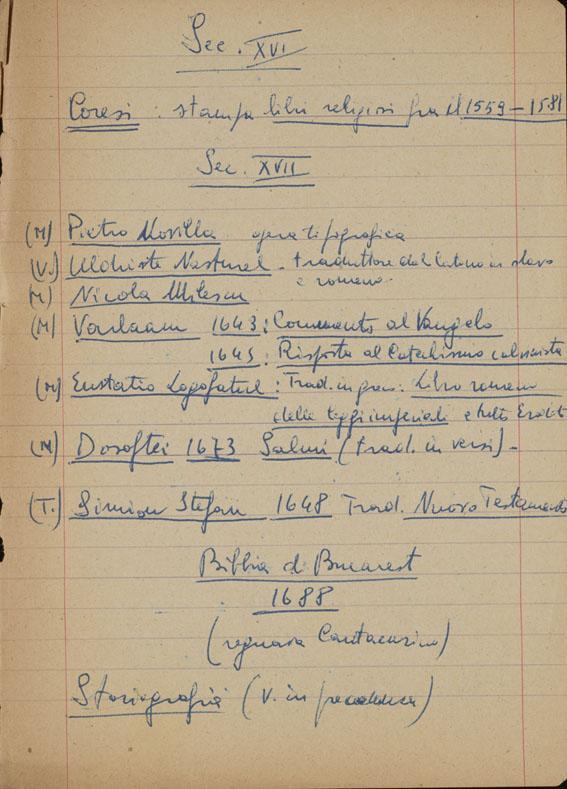 Sec. XVI
Coresi : stampa libri religiosi fra il 1559 – 1581
Sec. XVII
(M) Pietro Movilla opera tipografica
(V.) Udriste Nasturel – traduttore dal latino in slavo
e romeno
(M) Nicola Milescu
(M) Varlaam 1643 : Commento al Vangelo
1645 : Risposta al Catechismo calvinista
(M) Eustatio Logofatul : Trad. : Libro romeno
delle leggi imperiali e
(M) Dosoftei 1673 Salmi (trad. in versi) –
(T.) Simion Stefan 1648 Trad. Nuovo Testamento
Bibbia di Bucarest
1688
(regnava Cantacuzino)
Storiografia (v. in